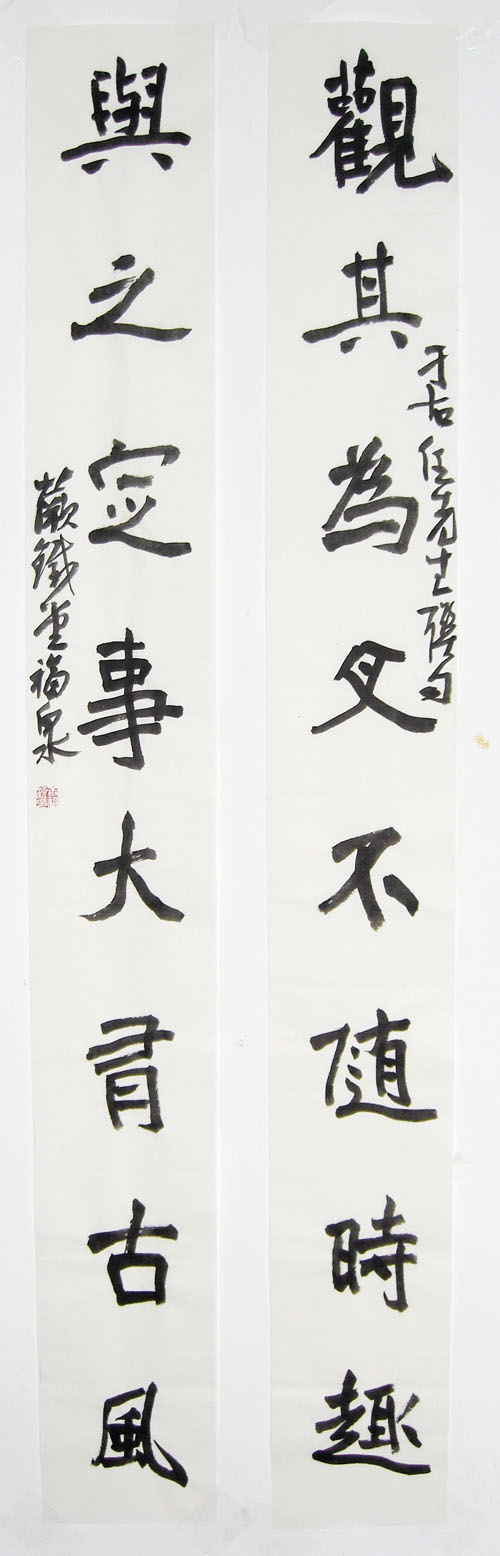 觀其為文不隨時趣
于右任先生聯句
與之定事大有古風
鐵福泉